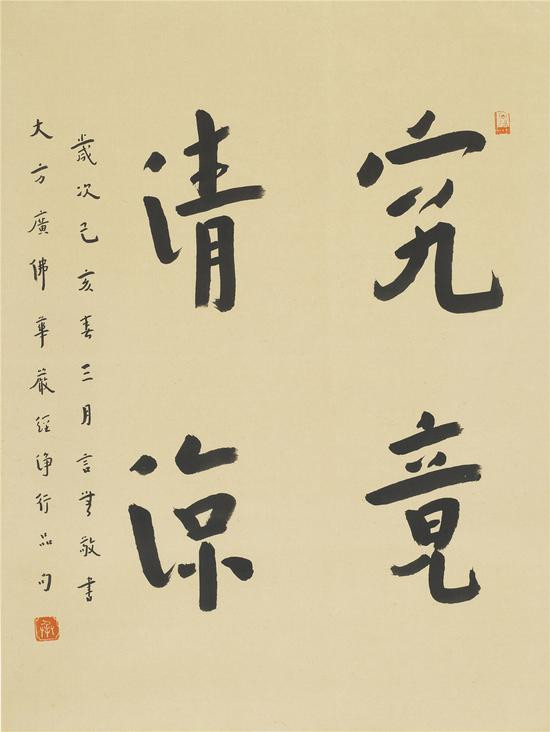 究竟
清涼
歲次己亥春三月言無敬書
大方廣佛華嚴經淨行品句